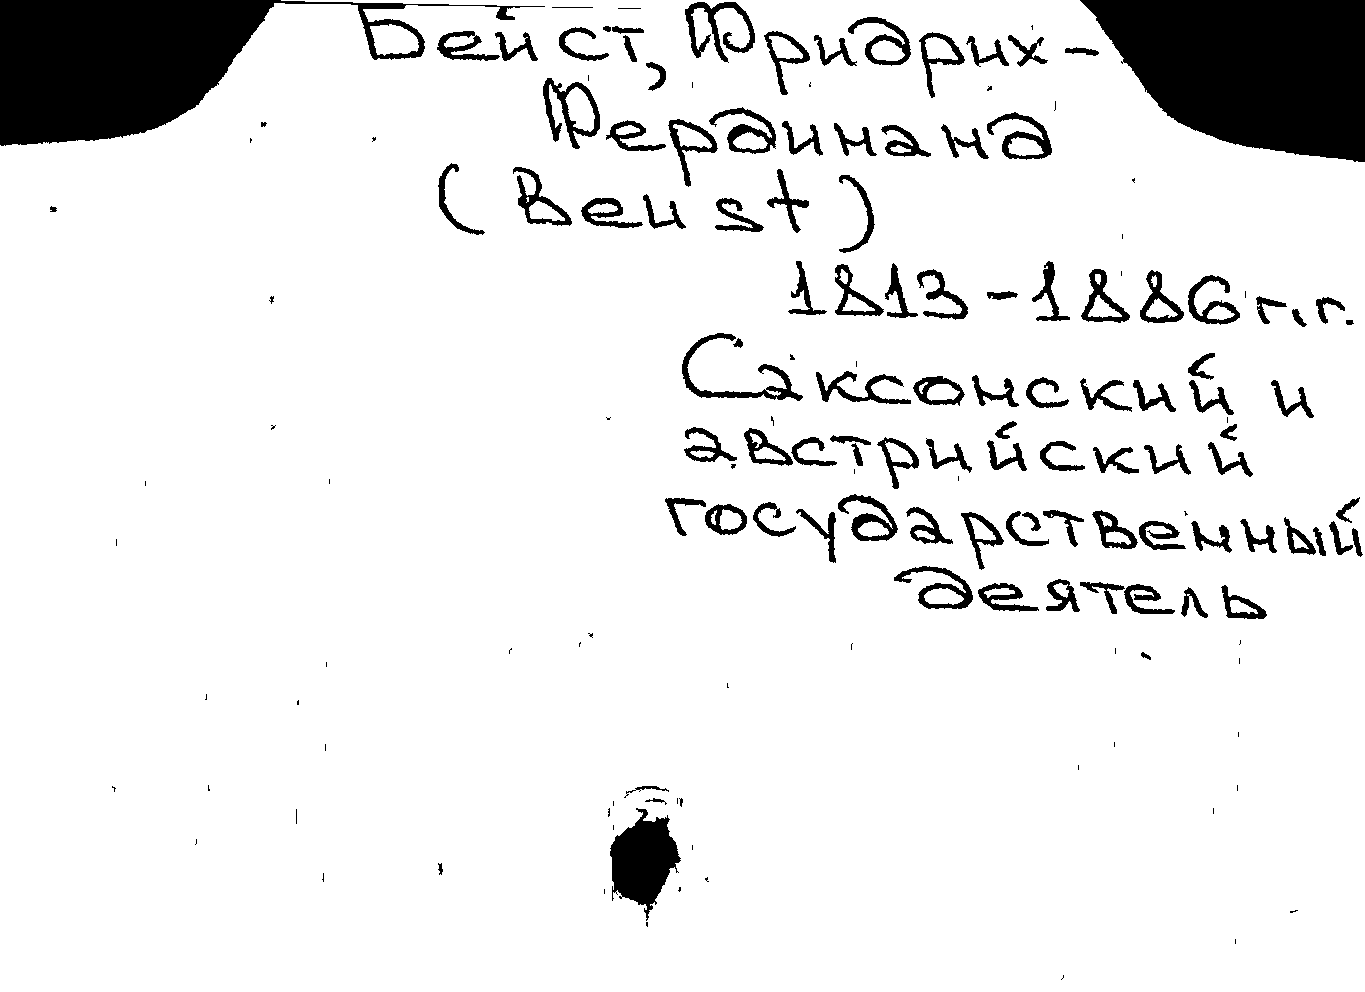 Бейст, Фридрих-
Фердинанд
(Beust)
1813-1886 г.г.
Саксонский и
австрийский
государственный
деятель